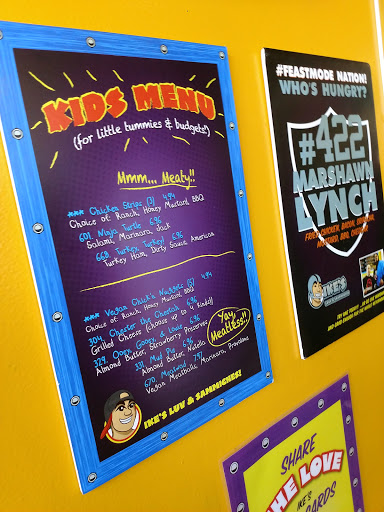 KIDS MENU
(for little tummies & budgets!)
Mmm... Meaty!!
*** Chicken Strips (3) 4.94
Choice of Ranch, Honey Mustard, BBQ
601. Ninja Turtle 6.96
Salami, Marinara, Jack
668. Turkey Turkey! 6.96
Turkey Ham, Dirty Sauce, American
*** Vegan Chick'n Nuggets (5) 4.94
Choice of Ranch, Honey Mustard, BBQ
304. Chester The Cheetah 6.96
Grilled Cheese (choose up to 4 kinds!)
329. Ooey Gooey & Louie 6.96
Almond Butter, Strawberry Preserves
331. Mud Pie 6.96
Almond Butter, Nutella
670. Meatwad
Vegan Meatballs, Marinara, Provolone
Yay, Meatless!!
IKE'S LUV & SANDWICHES!
#FEASTMODE NATION!
WHO'S HUNGRY?
#422
MARSHAWN
LYNCH
FRIED CHICKEN, BACON,
MUSTARD, BBQ,
IKE'S
SHARE
THE LOVE
IKE'S
CARDS